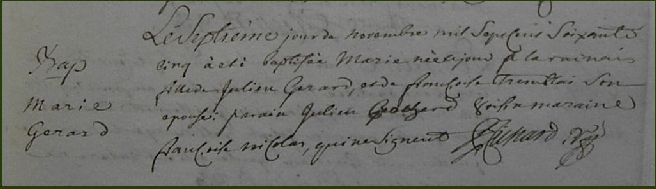 Bap
Marie
Gerard
Le Septieme jour de novembre mil Sept Cents Soixante
cinq à eté baptisée Marie née ce jour a la
fille de Julien Gerard, et de francoise Son
epouse; parain Julien maraine
francoise nicolas, qui ne signent